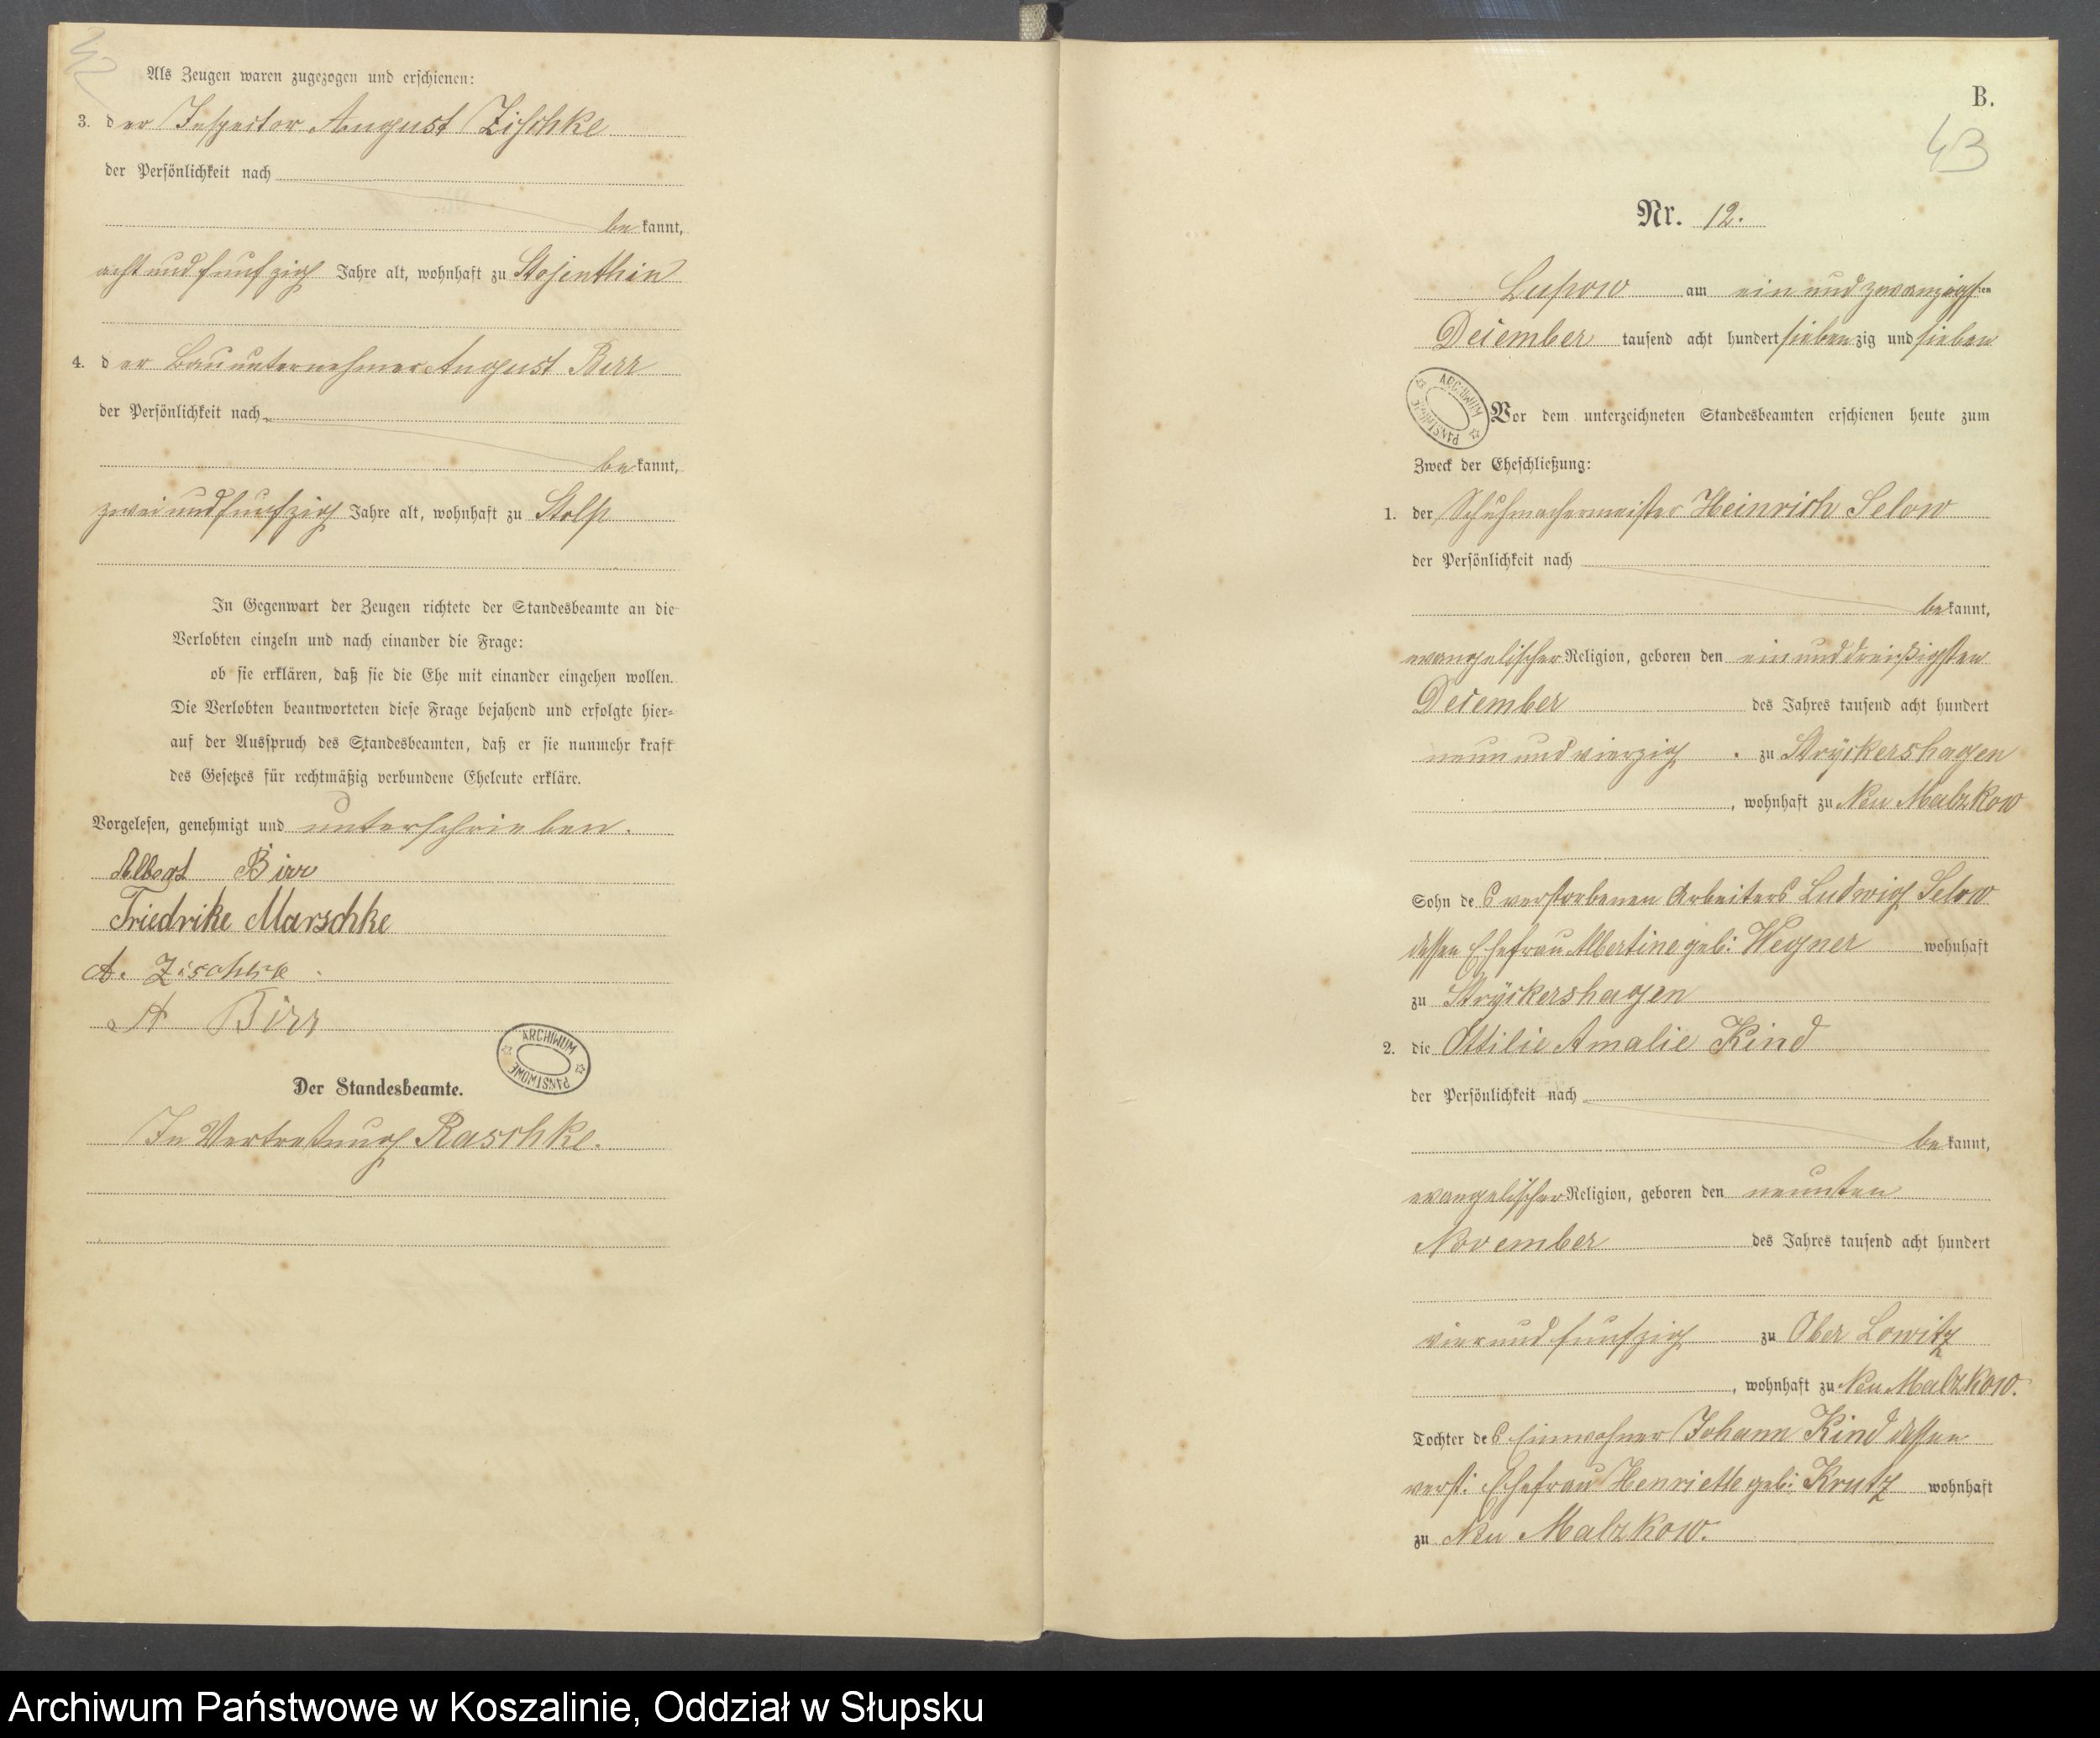 Als Zeugen waren zugezogen und erschienen:
3. der Inspector August Zischke
der Persönlichkeit nach
bekannt,
acht und funfzig Jahre alt, wohnhaft zu Stojenthin
4. der Bauunternehmer August Birr
der Persönlichkeit nach
bekannt,
zwei und funfzig Jahre alt, wohnhaft zu Stolp
In Gegenwart der Zeugen richtete der Standesbeamte an die
Verlobten einzeln und nach einander die Frage:
ob sie erklären, daß sie die Ehe mit einander eingehen wollen.
Die Verlobten beantworteten diese Frage bejahend und erfolgte hier-
auf der Ausspruch des Standesbeamten, daß er sie nunmehr kraft
des Gesetzes für rechtmäßig verbundene Eheleute erkläre.
Vorgelesen, genehmigt und unterschrieben.
Albert Birr
Friedrike Marschke
A. Zischke
A Birr
ARCHIWUM PAŃSTWOWE
Der Standesbeamte.
In Vertretung Raschke.
B.
43
Nr. 12.
Lupow am ein und zwanzigsten
December tausend acht hundert siebenzig und sieben
ARCHIWUM PAŃSTWOWE
Vor dem unterzeichneten Standesbeamten erschienen heute zum
Zweck der Eheschließung:
1. der Schuhmachermeister Heinrich Selow
der Persönlichkeit nach
bekannt,
evangelischer Religion, geboren den ein und dreißigsten
December des Jahres tausend acht hundert
neun und vierzig zu Stryckershagen
, wohnhaft zu Neu Malzkow
Sohn des verstorbenen Arbeiters Ludwig Selow
dessen Ehefrau Albertine geb: Wegner wohnhaft
zu Stryckershagen
2. die Ottilie Amalie Kind
der Persönlichkeit nach
bekannt,
evangelischer Religion, geboren den neunten
November des Jahres tausend acht hundert
vier und funfzig zu Ober Lowitz
, wohnhaft zu Neu Malzkow.
Tochter des Einwohner Johann Kind dessen
verst: Ehefrau Henriette geb: Krutz wohnhaft
zu Neu Malzkow.
Archiwum Państwowe w Koszalinie, Oddział w Słupsku